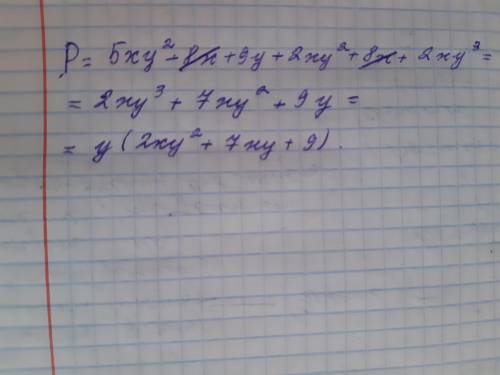 P = 5xy² - 8x + 9y + 2xy² + 8x + 2xy³ =
= 2xy³ + 7xy² + 9y =
= y (2xy² + 7xy + 9).